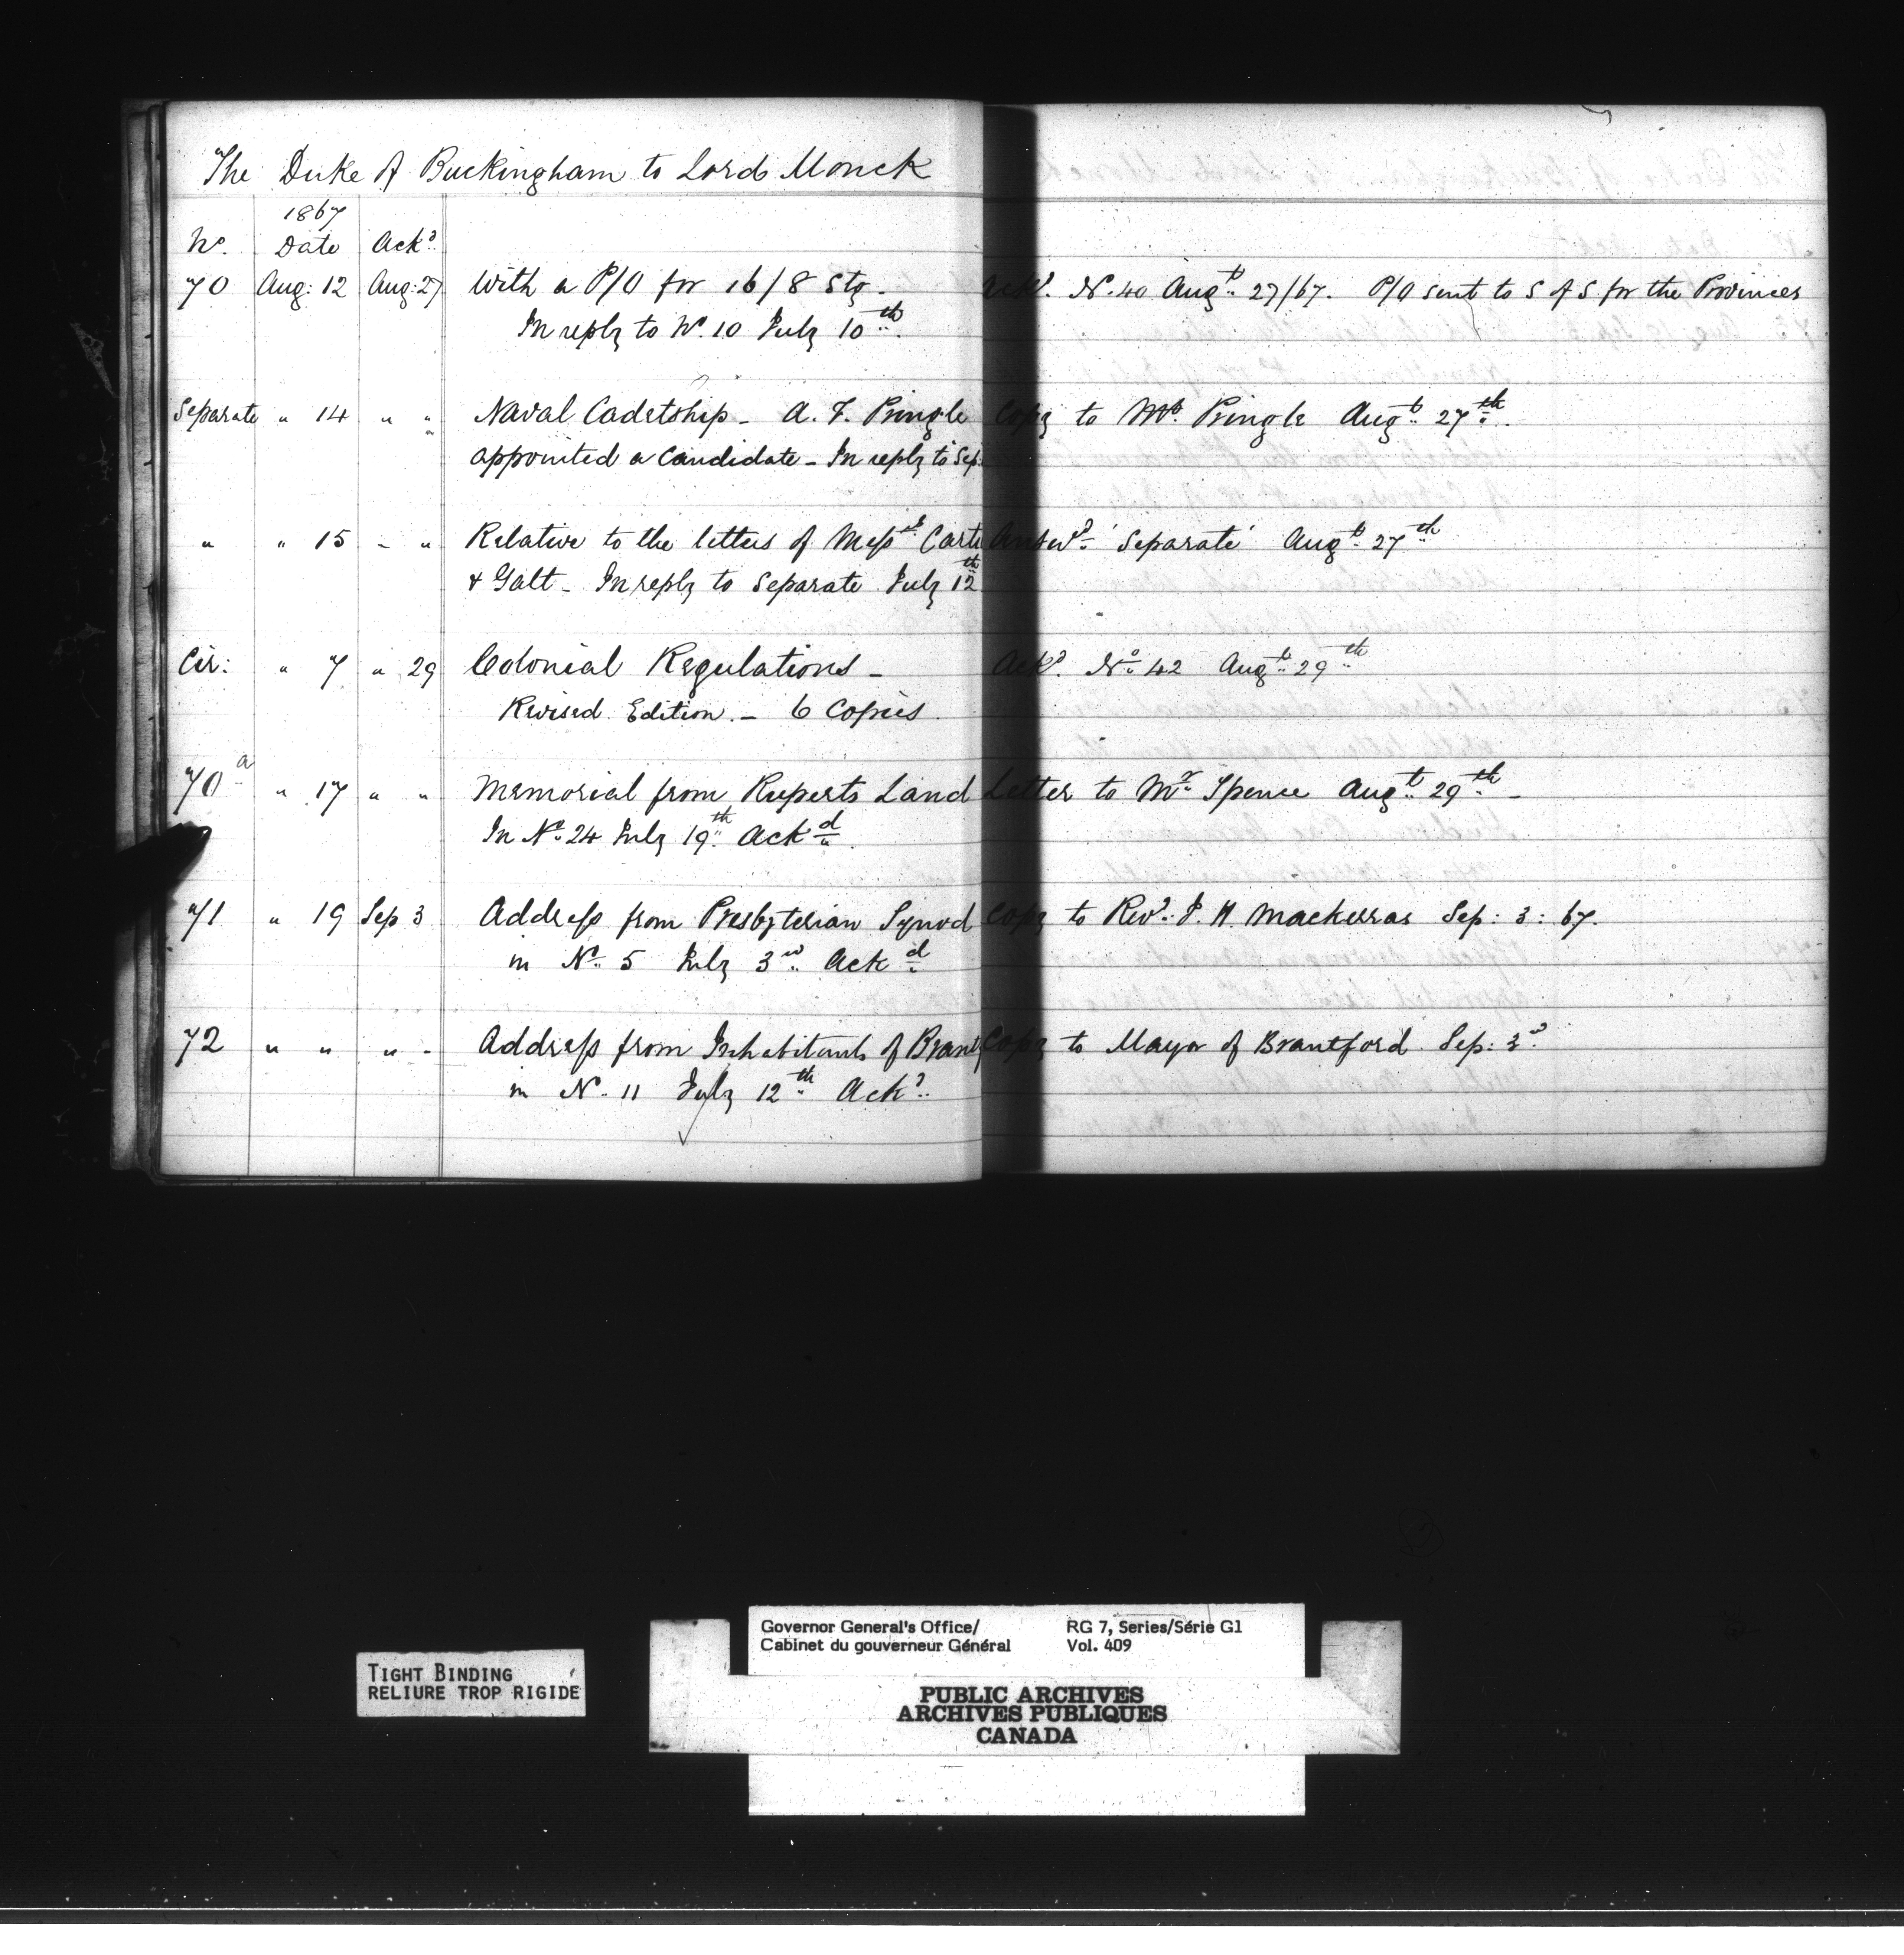 The Duke of Buckingham to Lord Monck
1867
No. Date Ackd.
70 Aug: 12 Aug: 27 With a P/O for 16/8 Stg. Ackd. No. 40 Augt. 27/67. P/O sent to S of S for the Provinces
In reply to No. 10 July 10th.
Separate " 14 " " Naval Cadetship - A. F. Pringle Copy to Mr. Pringle Augt. 27th.
appointed a Candidate - In reply to Sep.
" " 15 - " Relative to the letters of Messrs. Carti Answd. 'Separate' Augt. 27th
& Galt - In reply to Separate July 12th
Cir: " 7 " 29 Colonial Regulations - Ackd. No. 42 Augt. 29th
Revised Edition. - 6 Copies.
70a " 17 " " Memorial from Ruperts Land Letter to Mr. Spence Augt. 29th -
In No. 24 July 19th. Ackd.
71 " 19 Sep 3 Address from Presbyterian Synod Copy to Revd. J. H. Mackerras Sep: 3: 67.
in No. 5 July 3rd. Ackd.
72 " " " - Address from Inhabitants of Brantf Copy to Mayor of Brantford. Sep: 3d.
in No. 11 July 12th. Ackd.
TIGHT BINDING
RELIURE TROP RIGIDE
Governor General's Office/ RG 7, Series/Série G1
Cabinet du gouverneur Général Vol. 409
PUBLIC ARCHIVES
ARCHIVES PUBLIQUES
CANADA